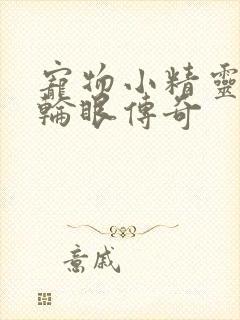 寵物小精靈
輪眼傳奇
意戚